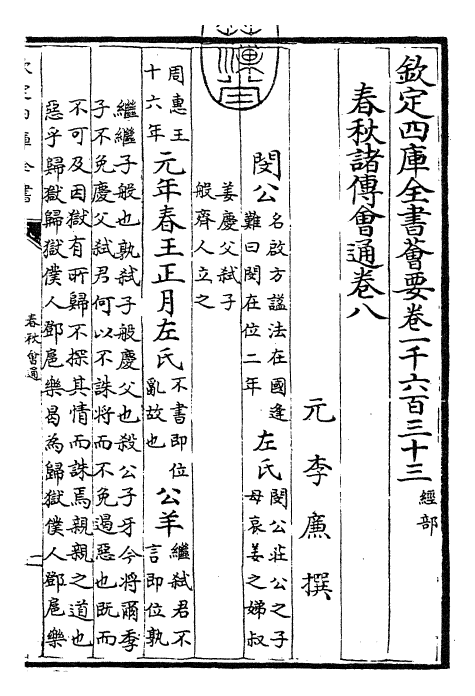 欽定四庫全書薈要卷一千六百三十三 經部
春秋諸傳會通卷八
元 李廉 撰
閔公 名啟方諡法在國逢難曰閔在位二年 左氏 閔公莊公之子母哀姜之娣叔
姜慶父弑子般齊人立之
周惠王十六年 元年春王正月左氏 不書即位亂故也 公羊 繼弑君不言即位孰
繼繼子般也孰弑子般慶父也殺公子牙今將爾季
子不免慶父弑君何以不誅將而不免遏惡也既而
不可及因獄有所歸不探其情而誅焉親親之道也
惡乎歸獄歸獄僕人鄧扈樂曷為歸獄僕人鄧扈樂
欽定四庫全書
春秋會通
一